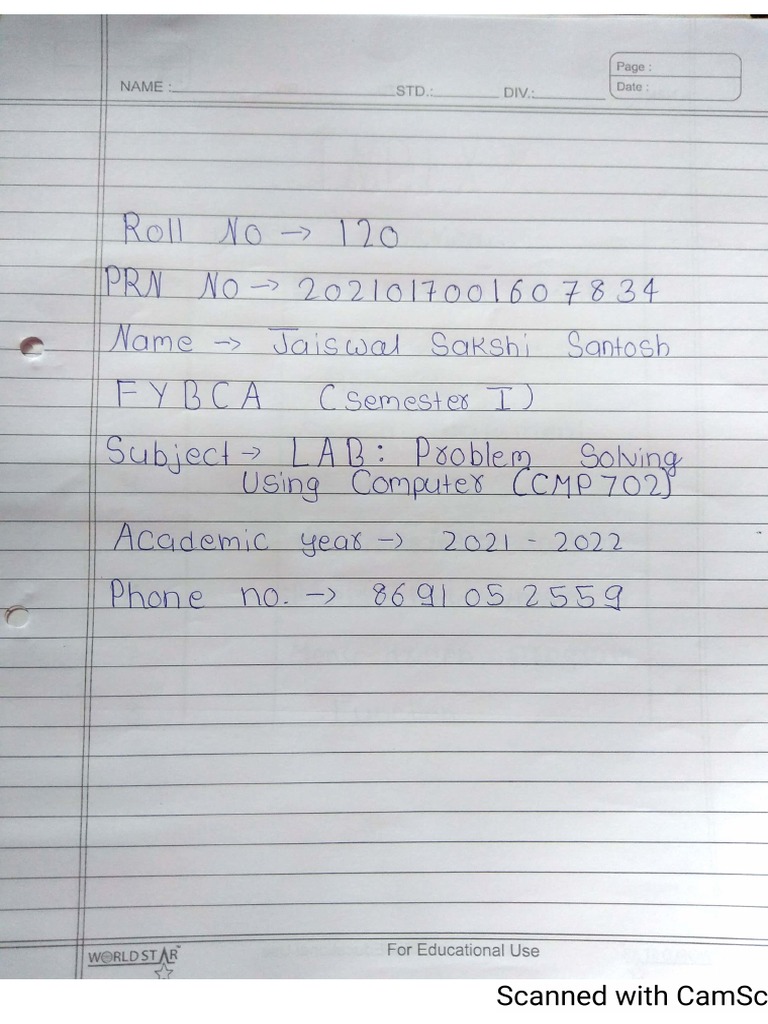 Page :
NAME : STD.: DIV.:
Date :
Roll No → 120
PRN No → 2021017001607834
Name → Jaiswal Sakshi Santosh
FYBCA (Semester I)
Subject → LAB: Problem Solving
Using Computer (CMP702)
Academic year → 2021 - 2022
Phone no. → 8691052559
WORLD STAR
For Educational Use
Scanned with CamSc